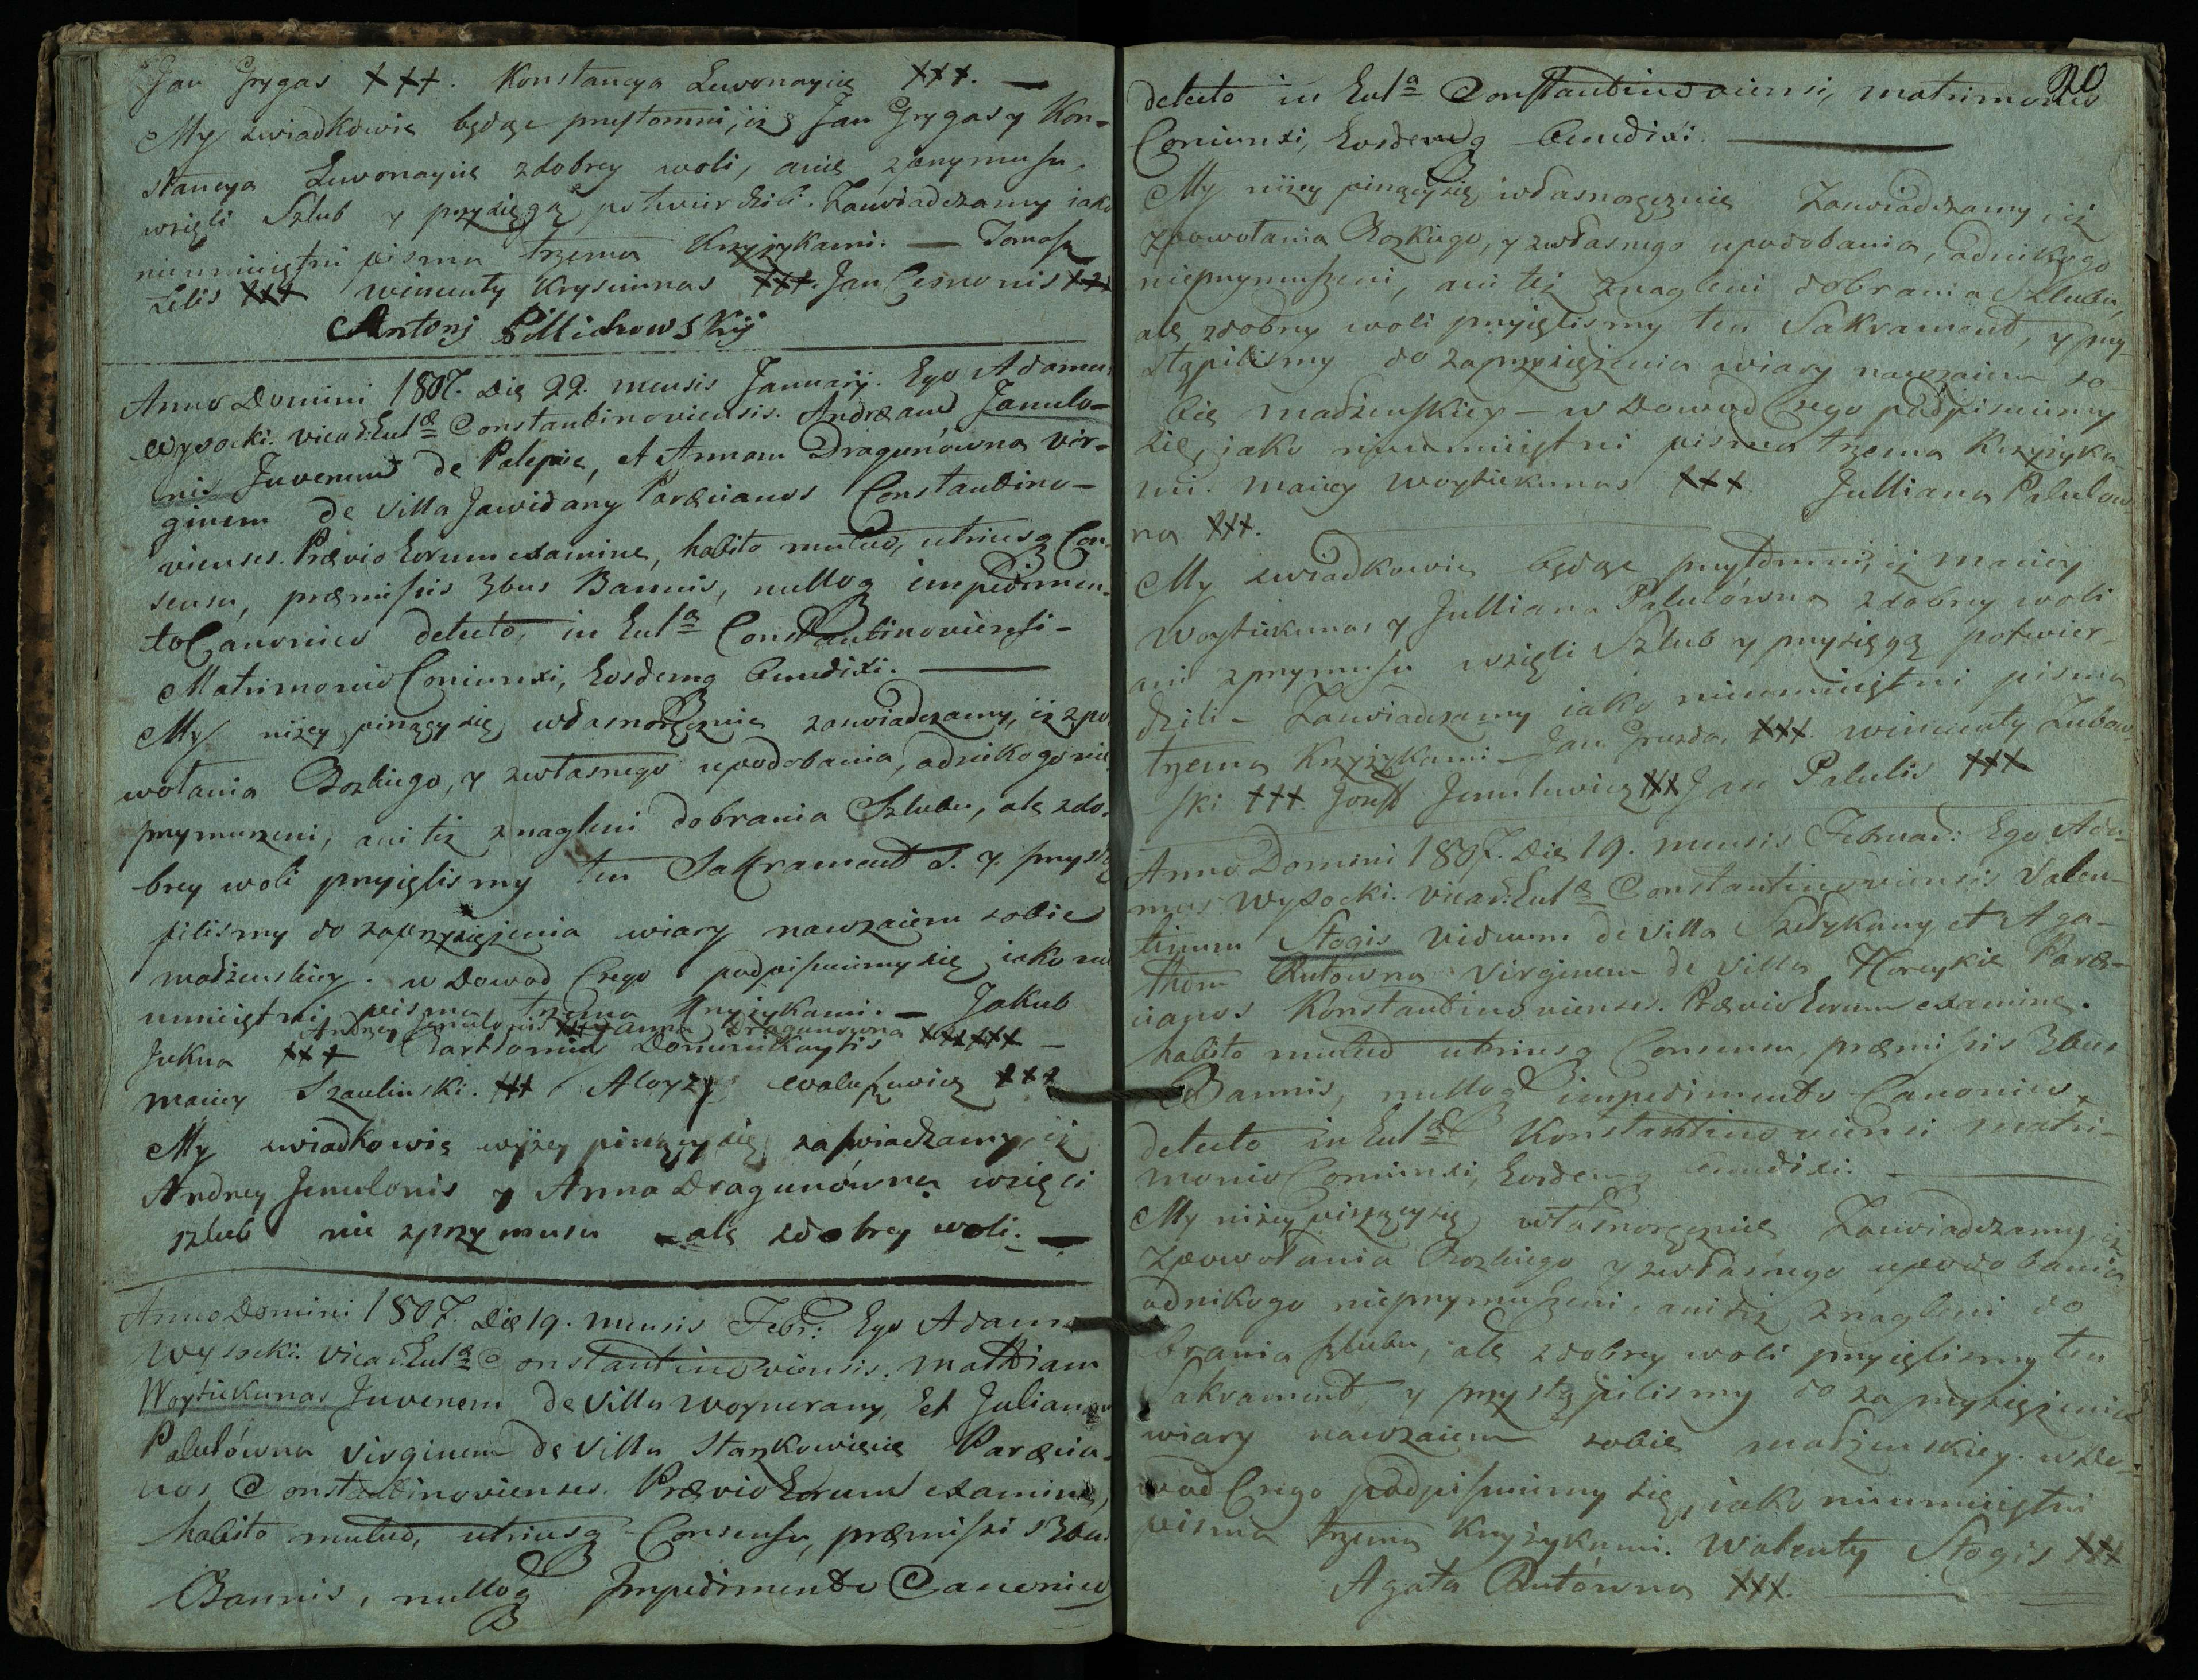 Jan Grygas +++. Konstancya Luvonaycię +++. —
My swiadkowie będąc przytomni, iż Jan Grygas y Kon-
stancya Luvonaycię z dobrey woli, a nie z przymusu,
wzięli Szlub y przysięgą potwierdzili. Zaswiadczamy iako
nieumieiętni pisma trzema Krzyżykami. — Tomasz
Lelis +++ Wincenty Krysciunas +++. Jan Cesnonis +++
Antonj Pillichowskij
Anno Domini 1807. Die 22. mensis Januarij. Ego Adamus
Wysocki. Vicar: Eccl̃æ Constantinoviensis. Andræam Janulo-
nis Juvenem de Palepie, et Annam Dragunowna vir-
ginem de Villa Jawidany Paræcianos Constantino-
vienses. Prævio Eorum examine, habito mutuo, utriusq Con-
sensu, præmissis 3bus Bannis, nulloq impedimen-
to Canonico detecto, in Eccla Constantinoviensi-
Matrimonio Coniunxi, Eosdemq benedixi. —
My niżey piszący się, własnoręcznie zaswiadczamy, iż z po-
wołania Bozkiego, y z własnego upodobania, od nikogo nie
przymuszeni, ani też znagleni do brania Szlubu, ale z do-
brey woli przyięlismy ten Sakrament S. y przystą
pilismy do zaprzysiężenia wiary nawzaiem sobie
małżenskiey. w Dowod Czego podpisuiemy się iako nie
umieiętni pisma trzema Krzyżykami. — Jakub
Andrzey Jenulonis +++ Anna Dragunowna +++
Jukna +++ Bartłomiey Dominikaytis +++ —
Maciey Szaulinski. +++ Aloyzy Waluszewicz +++
My swiadkowie wyżey piszący się zaswiadczamy, iż
Andrzey Jenulonis y Anna Dragunówna wzięli
szlub nie z przymusu ale z dobrey woli. —
Anno Domini 1807. Die 19. Mensis Febr: Ego Adamus
Wysocki. Vicar: Eccl̃æ Constantinoviensis. Mathiam
Woytiekunas Juvenem de Villa Woynerany, Et Julianam
Palulówna Virginem de Villa Stankowięcię Paræcia-
nos Constantinovienses. Prævio Eorum examine,
habito mutuo, utriusq Consensu, præmissis 3bus
Bannis, nulloq Impedimento Canonico
20
detecto in Eccla Constantinoviensi, matrimonio
Coniunxi, Eosdemq benedixi. —
My niżey piszący się własnoręcznie Zaswiadczamy, iż
z powołania Bozkiego, y z własnego upodobania, od nikogo
nieprzymuszeni, ani też znagleni do brania Szlubu,
ale z dobry woli przyięlismy ten Sakrament, y przy-
stąpilismy do zaprzysiężenia wiary nawzaiem so-
bie małżenskiey — w Dowod Czego podpisuiemy
się, iako nieumieiętni pisma trzema Krzyżyka-
mi. Maciey Woytiekunas +++. Julliana Palulow
na +++.
My swiadkowie będąc przytomni, iż Maciey
Woytiekunas y Julliana Palulówna z dobry woli
ani z przymusu wzięli Szlub y przysięgą potwier-
dzili — Zaswiadczamy iako nieumieiętni pisma
trzema Krzyżykami — Jan Gruzda +++. Wincenty Zubow
ski +++. Jozeff Jenulewicz +++ Jan Palulis +++
Anno Domini 1807. Die 19. mensis Februar: Ego Ada-
mus Wysocki. Vicar: Eccl̃æ Constantinoviensis Valen-
tinum Stogis Viduum de Villa Szedykany et Aga-
tham Butowna Virginem de Villa Noreykie Paræ-
cianos Konstantinovienses. Prævio Eorum examine.
habito mutuo utriusq Consensu, præmissis 3bus
Bannis, nulloq impedimento Canonico
detecto in Eccla Konstantinoviensi matri-
monio Coniunxi, Eosdemq benedixi. —
My niżey piszący się własnoręcznie Zaswiadczamy, iż
z powołania Bozkiego y z własnego upodobania
od nikogo nieprzymuszeni, ani też znagleni do
brania szlubu, ale z dobrey woli przyięlismy ten
Sakrament y przystąpilismy do zaprzysiężenia
wiary nawzaiem sobie małżenskiey. w Do-
wod Czego podpisuiemy się, iako nieumieiętni
pisma trzema Krzyżykami. Walenty Stogis +++
Agata Butówna +++. —